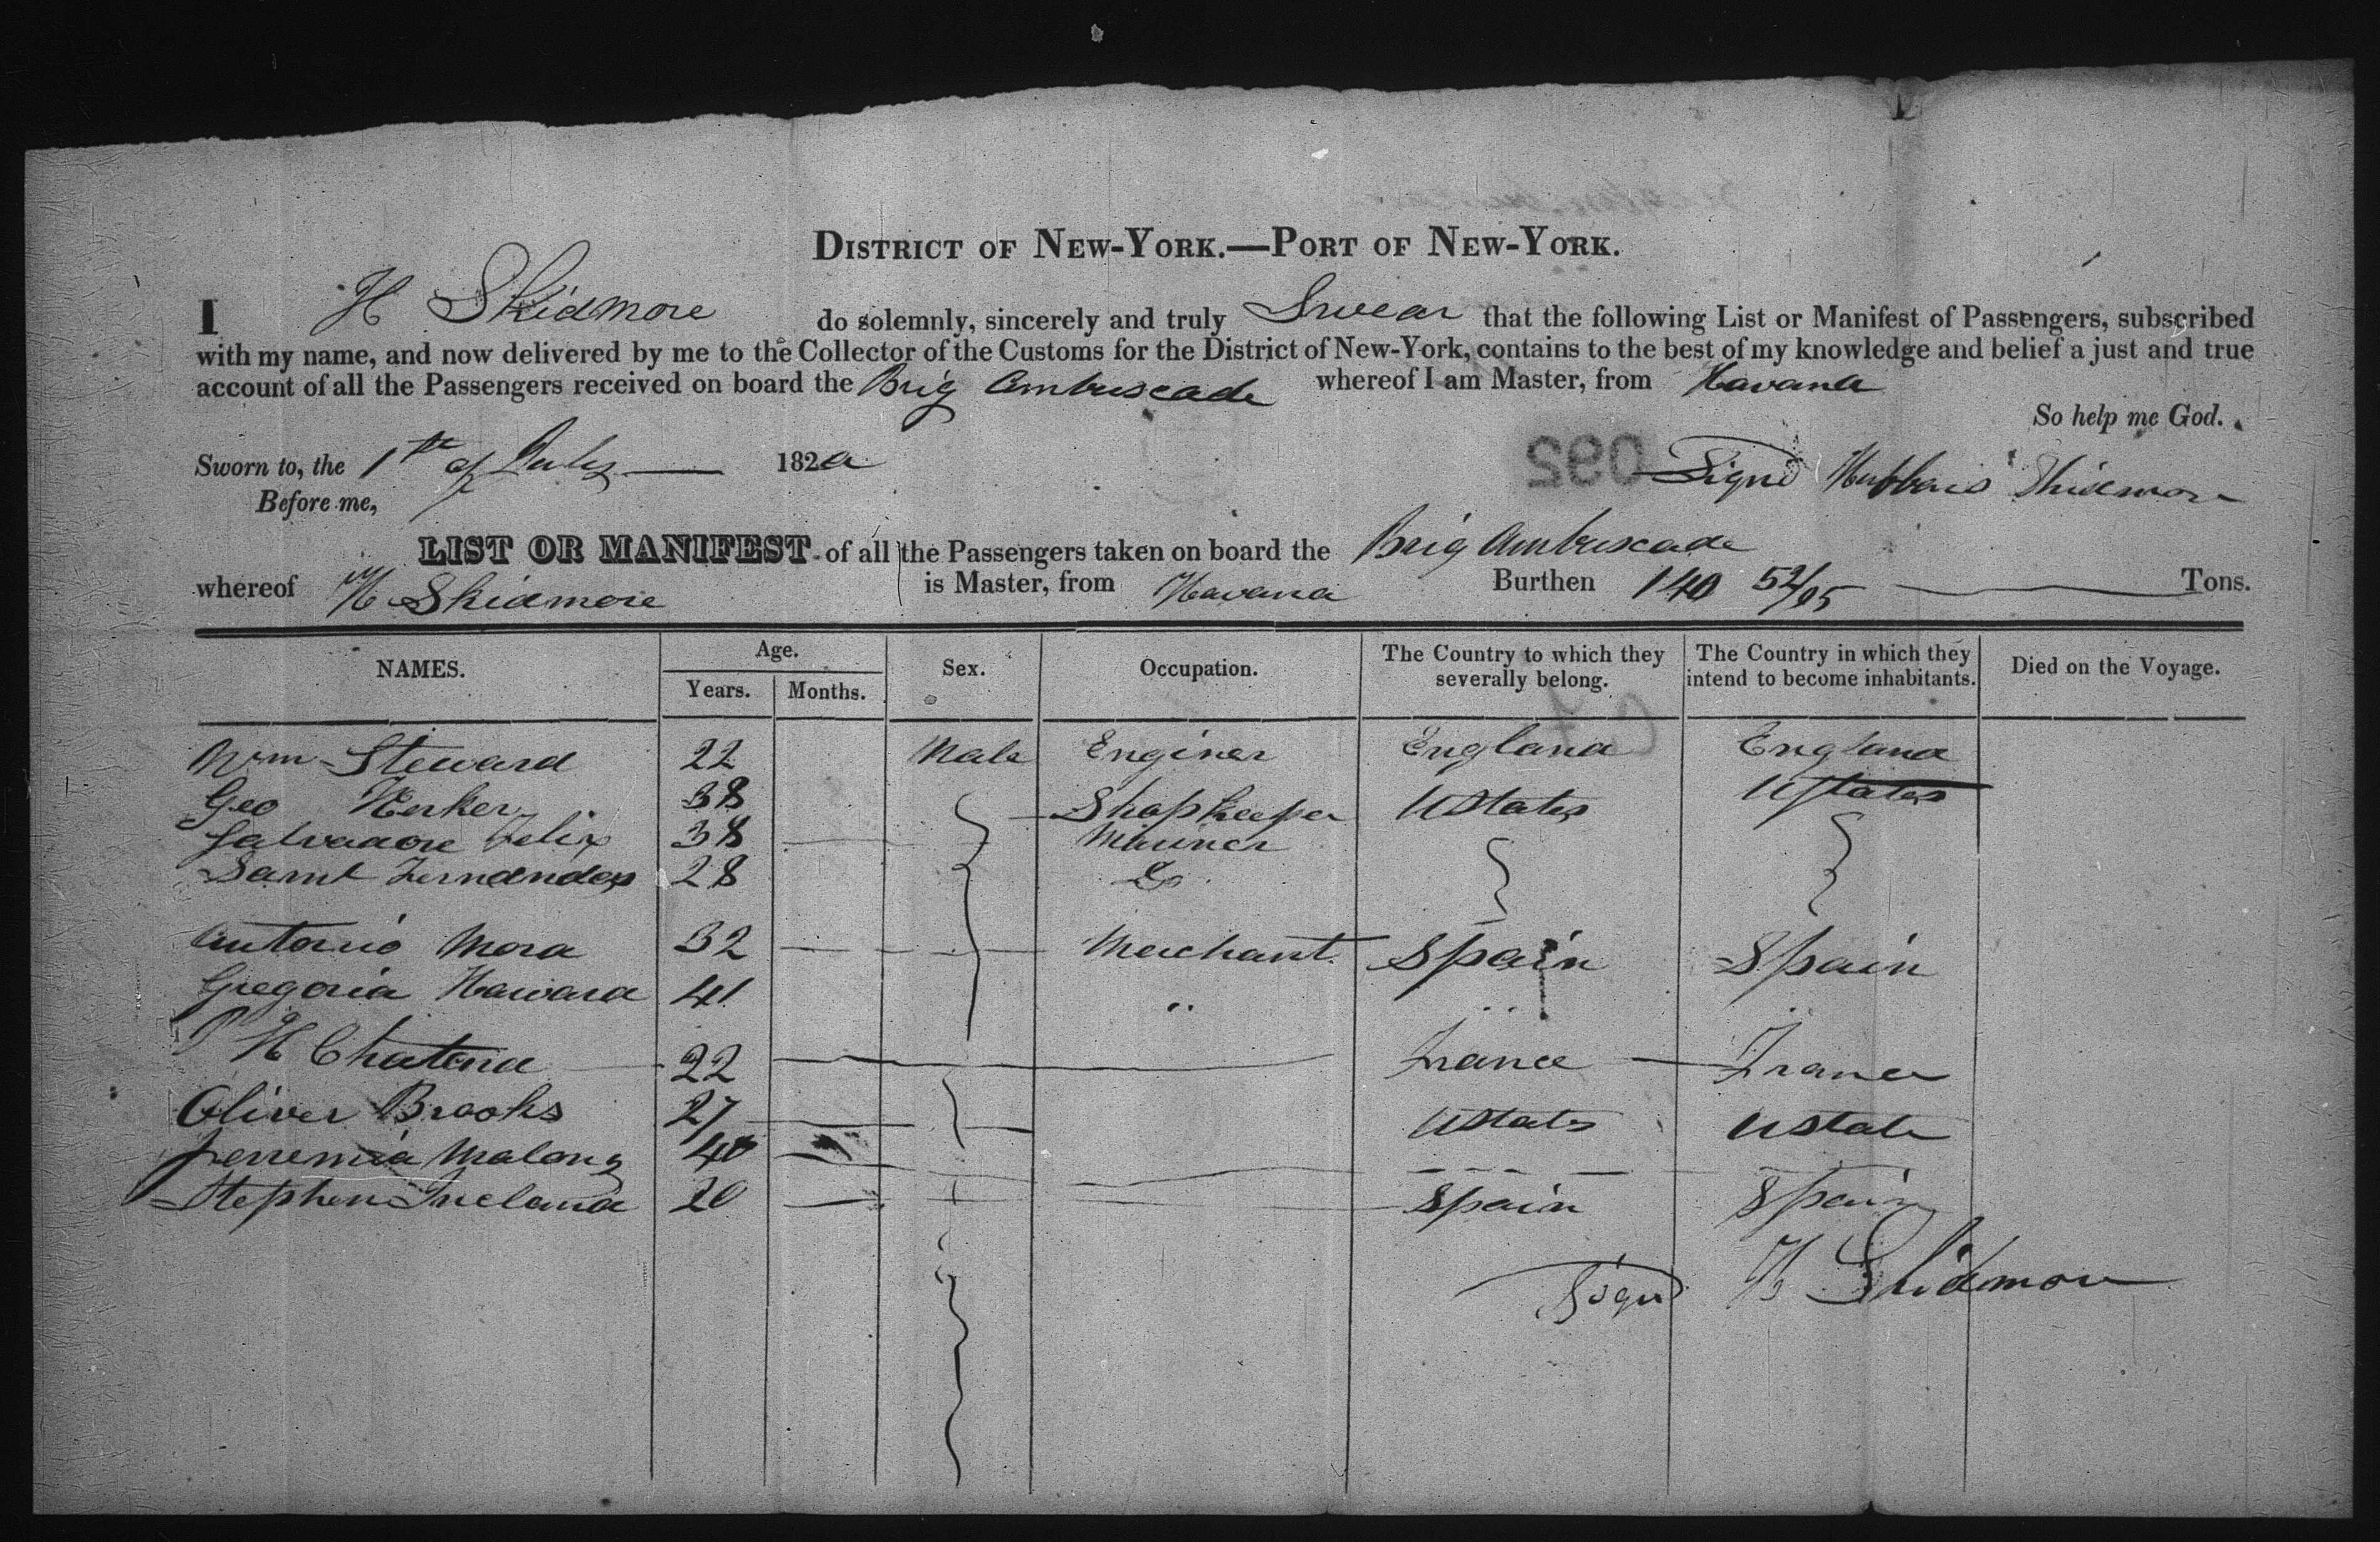 DISTRICT OF NEW-YORK.—PORT OF NEW-YORK.
I H Skidmore do solemnly, sincerely and truly Swear that the following List or Manifest of Passengers, subscribed
with my name, and now delivered by me to the Collector of the Customs for the District of New-York, contains to the best of my knowledge and belief a just and true
account of all the Passengers received on board the Brig Ambuscade whereof I am Master, from Havana
So help me God.
Sworn to, the 1th of July 182
Before me,
092 Signd Skidmore
LIST OR MANIFEST of all the Passengers taken on board the Brig Ambuscade
whereof H Skidmore is Master, from Havana Burthen 140 52/95 Tons.
NAMES. Age. Years. Months. Sex. Occupation. The Country to which they severally belong. The Country in which they intend to become inhabitants. Died on the Voyage.
Wm Steward 22 Male Enginer England England
Geo Herker 38 Shopkeeper UStates UStates
Salvadore Felix 38 Mariner
Saml Fernandes 28 Do
Antonio Mora 32 Merchant Spain Spain
Gregoria 41 " " "
P H 22 France France
Oliver Brooks 27 UStates UState
Jerremia Malony 40
Stephen 20 Spain Spain
Signd H Skidmore